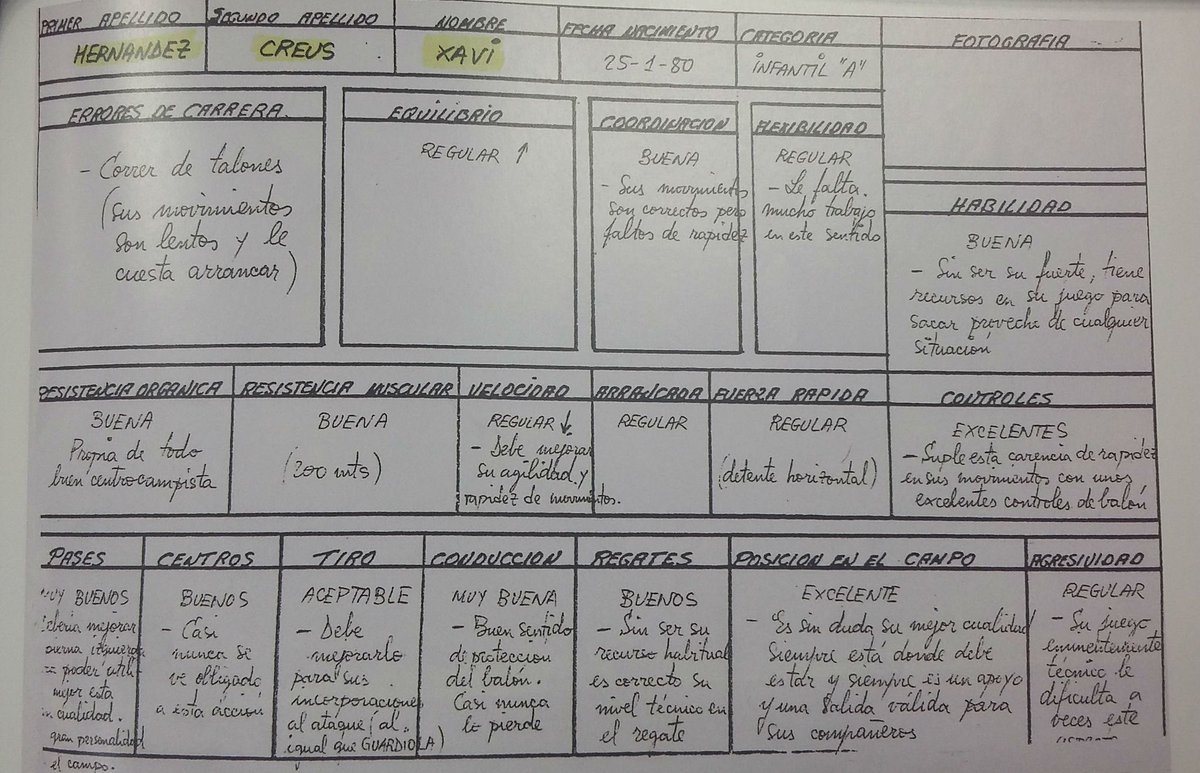 PRIMER APELLIDO
HERNANDEZ
SEGUNDO APELLIDO
CREUS
NOMBRE
XAVI
FECHA NACIMIENTO
25-1-80
CATEGORIA
INFANTIL "A"
FOTOGRAFIA
ERRORES DE CARRERA.
- Correr de talones
(sus movimientos
son lentos y le
cuesta arrancar)
EQUILIBRIO
REGULAR ↑
COORDINACION
BUENA
- Sus movimientos
son correctos pero
faltos de rapidez
FLEXIBILIDAD
REGULAR
- Le falta
mucho trabajo
en este sentido
HABILIDAD
BUENA
- Sin ser su fuerte, tiene
recursos en su juego para
sacar provecho de cualquier
situación
RESISTENCIA ORGANICA
BUENA
Propia de todo
buen centrocampista
RESISTENCIA MUSCULAR
BUENA
(200 mts)
VELOCIDAD
REGULAR ↓
- Debe mejorar
su agilidad y
rapidez de movimientos.
ARRANCADA
REGULAR
FUERZA RAPIDA
REGULAR
(detente horizontal)
CONTROLES
EXCELENTES
- Suple esta carencia de rapidez
en sus movimientos con unos
excelentes controles de balón
PASES
MUY BUENOS
debería mejorar
pierna izquierda
poder utili-
mejor esta
cualidad.
gran personalidad
el campo.
CENTROS
BUENOS
- Casi
nunca se
ve obligado
a esta acción
TIRO
ACEPTABLE
- Debe
mejorarlo
para sus
incorporaciones
al ataque (al
igual que GUARDIOLA)
CONDUCCION
MUY BUENA
- Buen sentido
de protección
del balón.
Casi nunca
lo pierde
REGATES
BUENOS
- Sin ser su
recurso habitual
es correcto su
nivel técnico en
el regate
POSICION EN EL CAMPO
EXCELENTE
- Es sin duda su mejor cualidad
siempre está donde debe
estar y siempre es un apoyo
y una salida válida para
sus compañeros
AGRESIVIDAD
REGULAR
- Su juego
eminentemente
técnico le
dificulta a
veces este